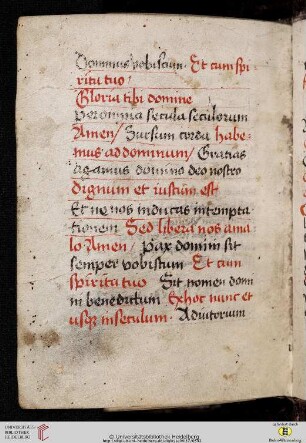 Dominus vobiscum. Et cum spi-
ritu tuo /
Gloria tibi domine
Per omnia secula seculorum
Amen / Sursum corda habe-
mus ad dominum / Gratias
agamus domino deo nostro
dignum et iustum est
Et ne nos inducas in tempta
tionem Sed libera nos a ma
lo Amen / Pax domini sit
semper vobiscum Et cum
spiritu tuo Sit nomen domi
ni benedictum Ex hoc nunc et
usque in seculum. Adiutorium
UNIVERSITÄTS-
BIBLIOTHEK
HEIDELBERG
© Universitätsbibliothek Heidelberg